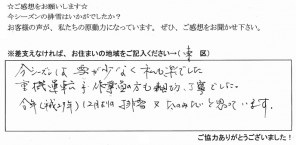 ☆ご感想をお願いします☆
今シーズンの排雪はいかがでしたか?
お客様の声が、私たちの原動力になっています。ぜひ、ご感想をお聞かせ下さい。
※差支えなければ、お住まいの地域をご記入ください→( 東 区)
今シーズンは 雪が少なく 私も楽でした
重機運転手 作業員の方も親切、丁寧でした
今年(平成29年)12月も 排雪 又 たのみたいと思っています。
ご協力ありがとうございました!